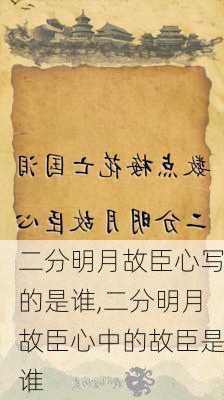 数点梅花亡国泪
二分明月故臣心
二分明月故臣心写
的是谁,二分明月
故臣心中的故臣是
谁